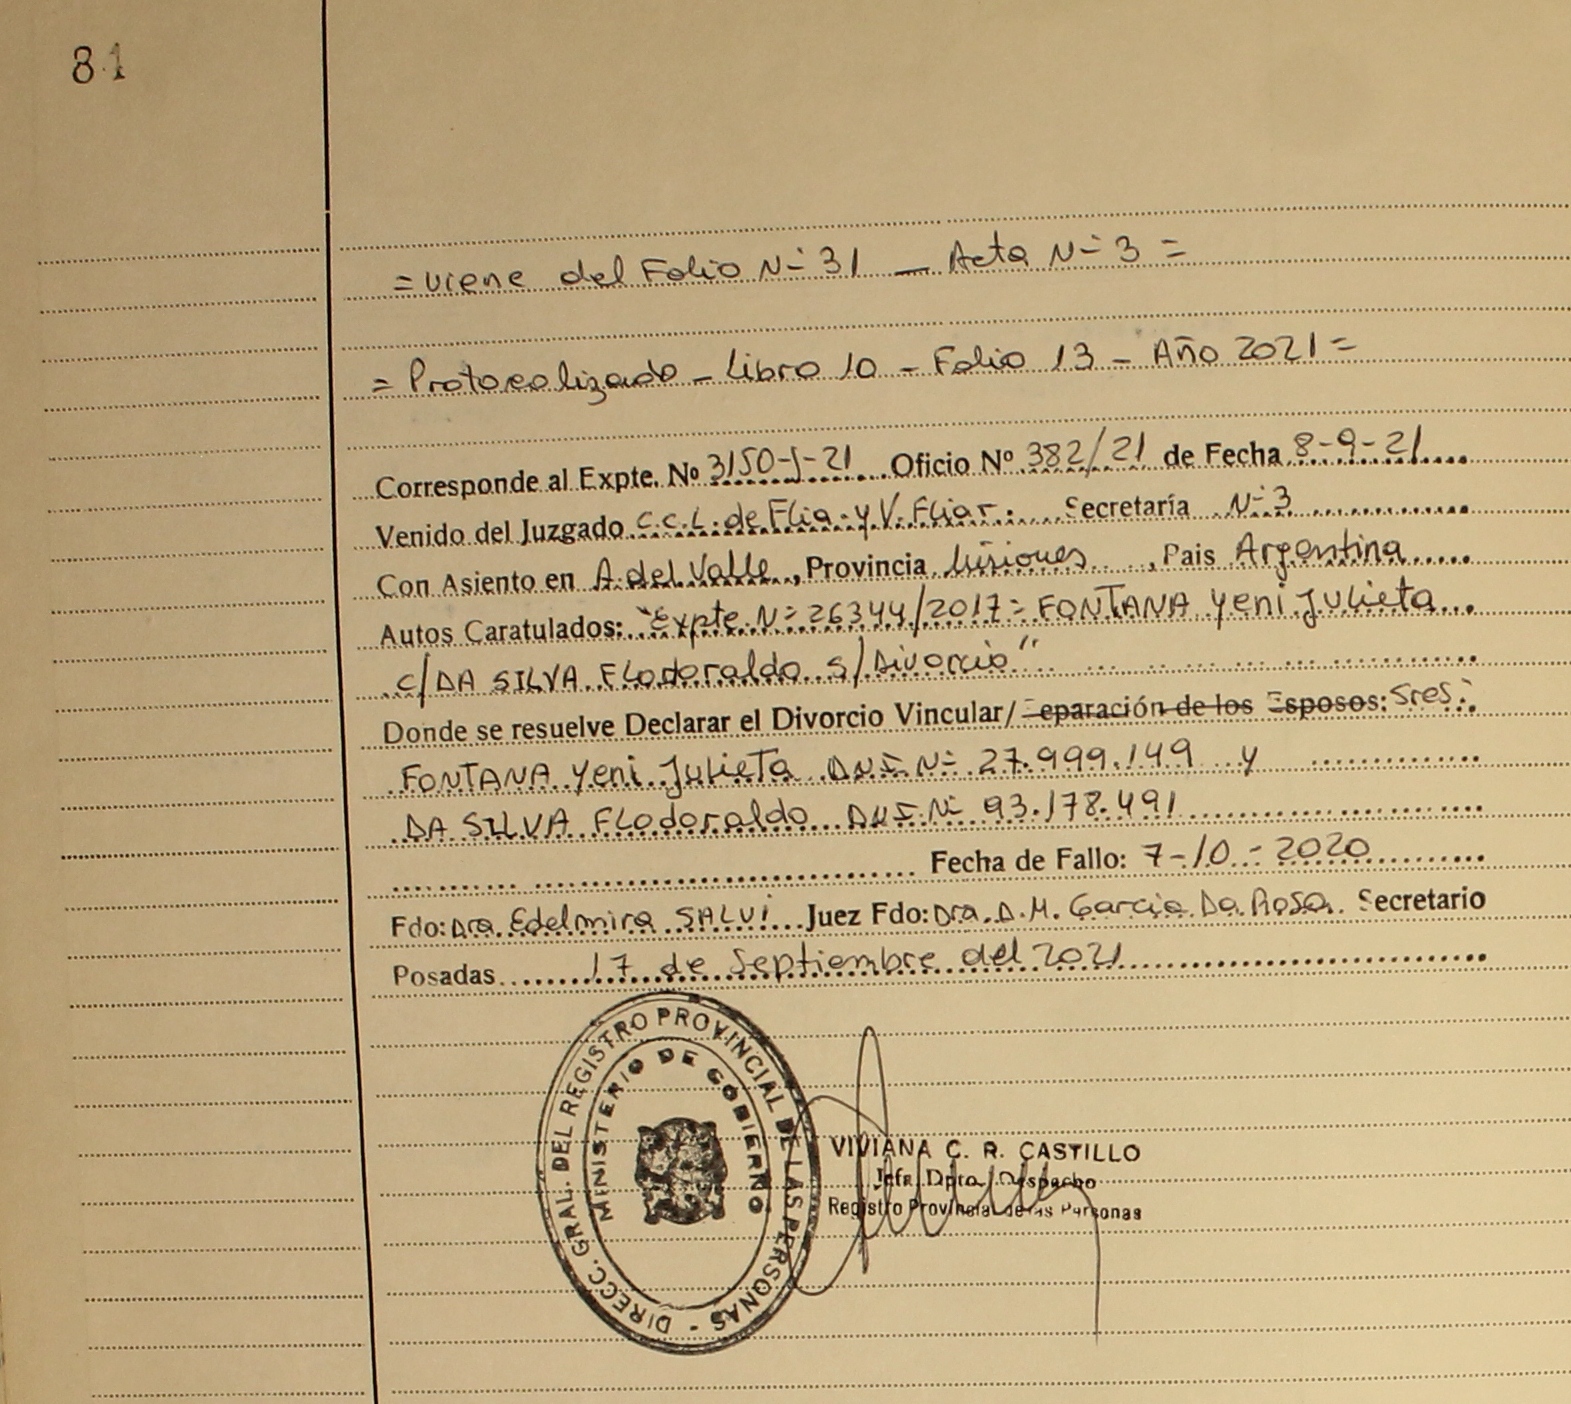 81
= viene del Folio Nº 31 _ Acta Nº 3 =
= Protocolizado - Libro 10 - Folio 13 - Año 2021 =
Corresponde al Expte. Nº 3150-J-21 Oficio Nº 382/21 de Fecha 8-9-21
Venido del Juzgado C.C.L. de Flia. y V. Fliar. Secretaría Nº 3
Con Asiento en A. del Valle, Provincia Misiones, Pais Argentina
Autos Caratulados: "Expte. Nº 26344/2017 = FONTANA Yeni Julieta
c/ DA SILVA Flodoraldo s/ Divorcio"
Donde se resuelve Declarar el Divorcio Vincular/ Separación de los Esposos: Sres:
FONTANA Yeni Julieta DNI. Nº 27.999.149 y
DA SILVA Flodoraldo DNI. Nº 93.178.491
Fecha de Fallo: 7-10-2020
Fdo: Dra. Edelmira SALVI Juez Fdo: Dra. D. M. Garcia Da Rosa. Secretario
Posadas 17 de Septiembre del 2021
DIRECC. GRAL. DEL REGISTRO PROVINCIAL DE LAS PERSONAS -
MINISTERIO DE GOBIERNO
VIVIANA C. R. CASTILLO
Jefe Dpto. Despacho
Registro Provincial de las Personas